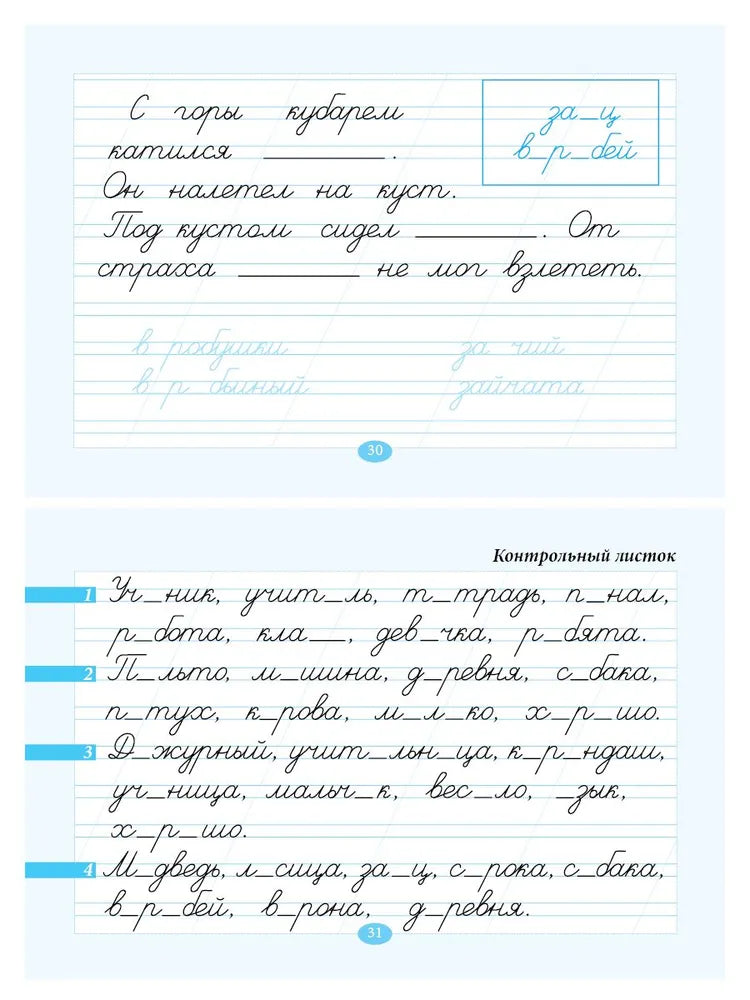 С горы кубарем
за_ц
катился ________.
в_р_бей
Он налетел на куст.
Под кустом сидел ________. От
страха ________ не мог взлететь.
в робушки за чий
в р бьиный зайчата
30
Контрольный листок
1 Уч_ник, учит_ль, т_традь, п_нал,
р_бота, кла__, дев_чка, р_бята.
2 П_льто, м_шина, д_ревня, с_бака,
п_тух, к_рова, м_л_ко, х_р_шо.
3 Д_журный, учит_льн_ца, к_р_ндаш,
уч_ница, мальч_к, вес_ло, _зык,
х_р_шо.
4 М_дведь, л_сица, за_ц, с_рока, с_бака,
в_р_бей, в_рона, д_ревня.
31